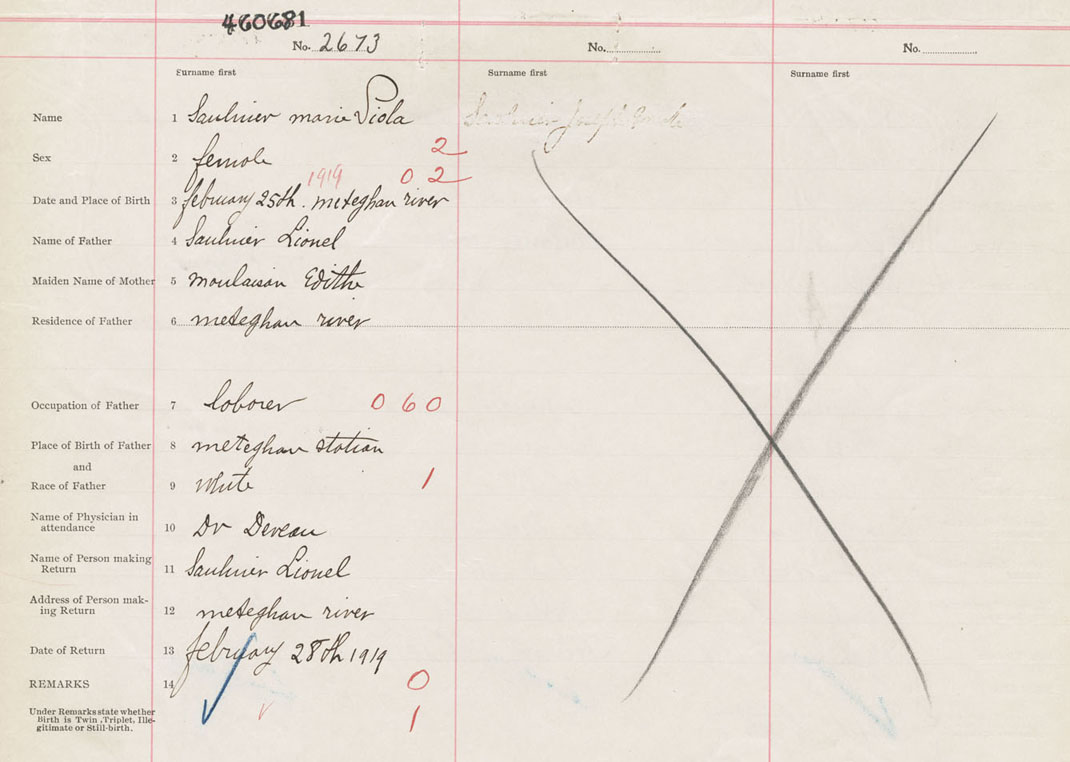 460681
No. 2673 No. No.
Surname first Surname first Surname first
Name 1 Saulnier marie Viola Saulnier Joseph
Sex 2 female 2
1919 0 2
Date and Place of Birth 3 february 25th. meteghan river
Name of Father 4 Saulnier Lionel
Maiden Name of Mother 5 moulaison Edithe
Residence of Father 6 meteghan river
Occupation of Father 7 laborer 0 6 0
Place of Birth of Father 8 meteghan station
and
Race of Father 9 White 1
Name of Physician in
attendance 10 Dr Deveau
Name of Person making
Return 11 Saulnier Lionel
Address of Person mak-
ing Return 12 meteghan river
Date of Return 13 february 28th 1919
REMARKS 14 0
Under Remarks state whether
Birth is Twin, Triplet, Ille-
gitimate or Still-birth. 1